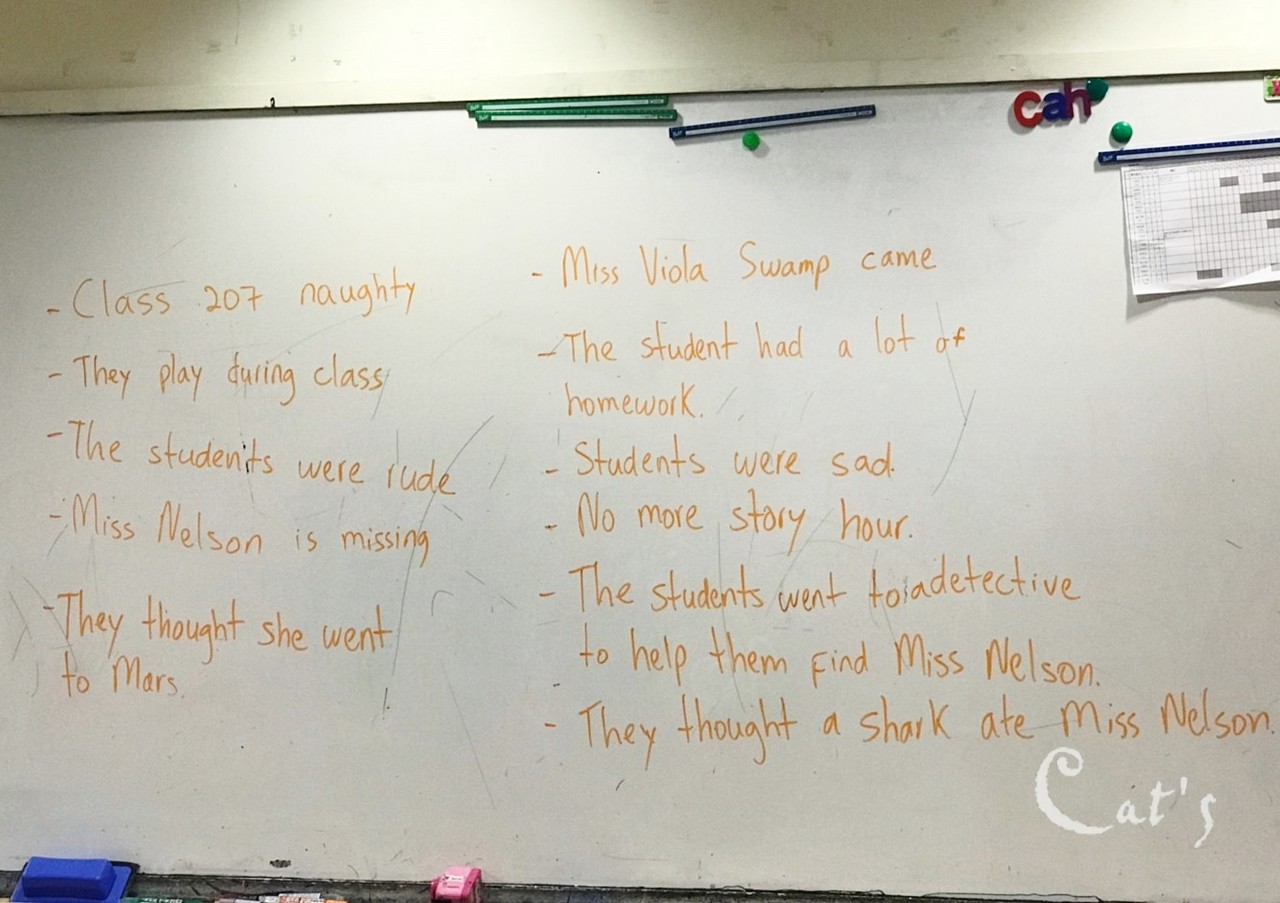 cah
- Class 207 naughty
- They play during class
- The students were rude
- Miss Nelson is missing
- They thought she went
to Mars.
- Miss Viola Swamp came
- The student had a lot of
homework.
- Students were sad.
- No more story hour.
- The students went to a detective
to help them find Miss Nelson.
- They thought a shark ate Miss Nelson.
Cat's